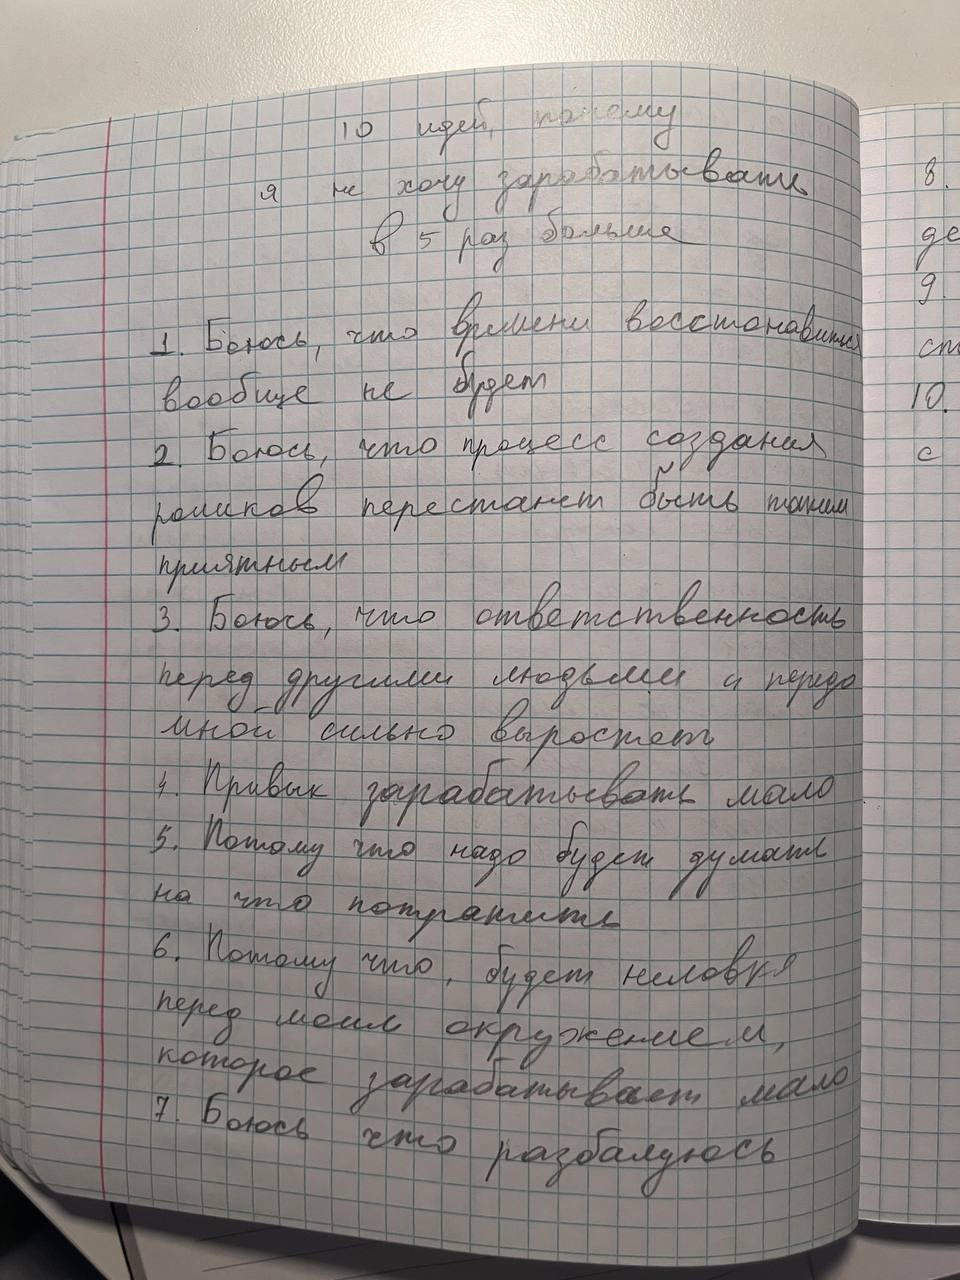 10 идей, почему
я не хочу зарабатывать
в 5 раз больше
1. Боюсь, что времени восстановиться
вообще не будет
2. Боюсь, что процесс создания
роликов перестанет быть таким
приятным
3. Боюсь, что ответственность
перед другими людьми и передо
мной сильно выростет
4. Привык зарабатывать мало
5. Потому что надо будет думать
на что потратить
6. Потому что, будет неловко
перед моим окружением,
которое зарабатывает мало
7. Боюсь что разбалуюсь
8.
де
9.
ст
10.
с